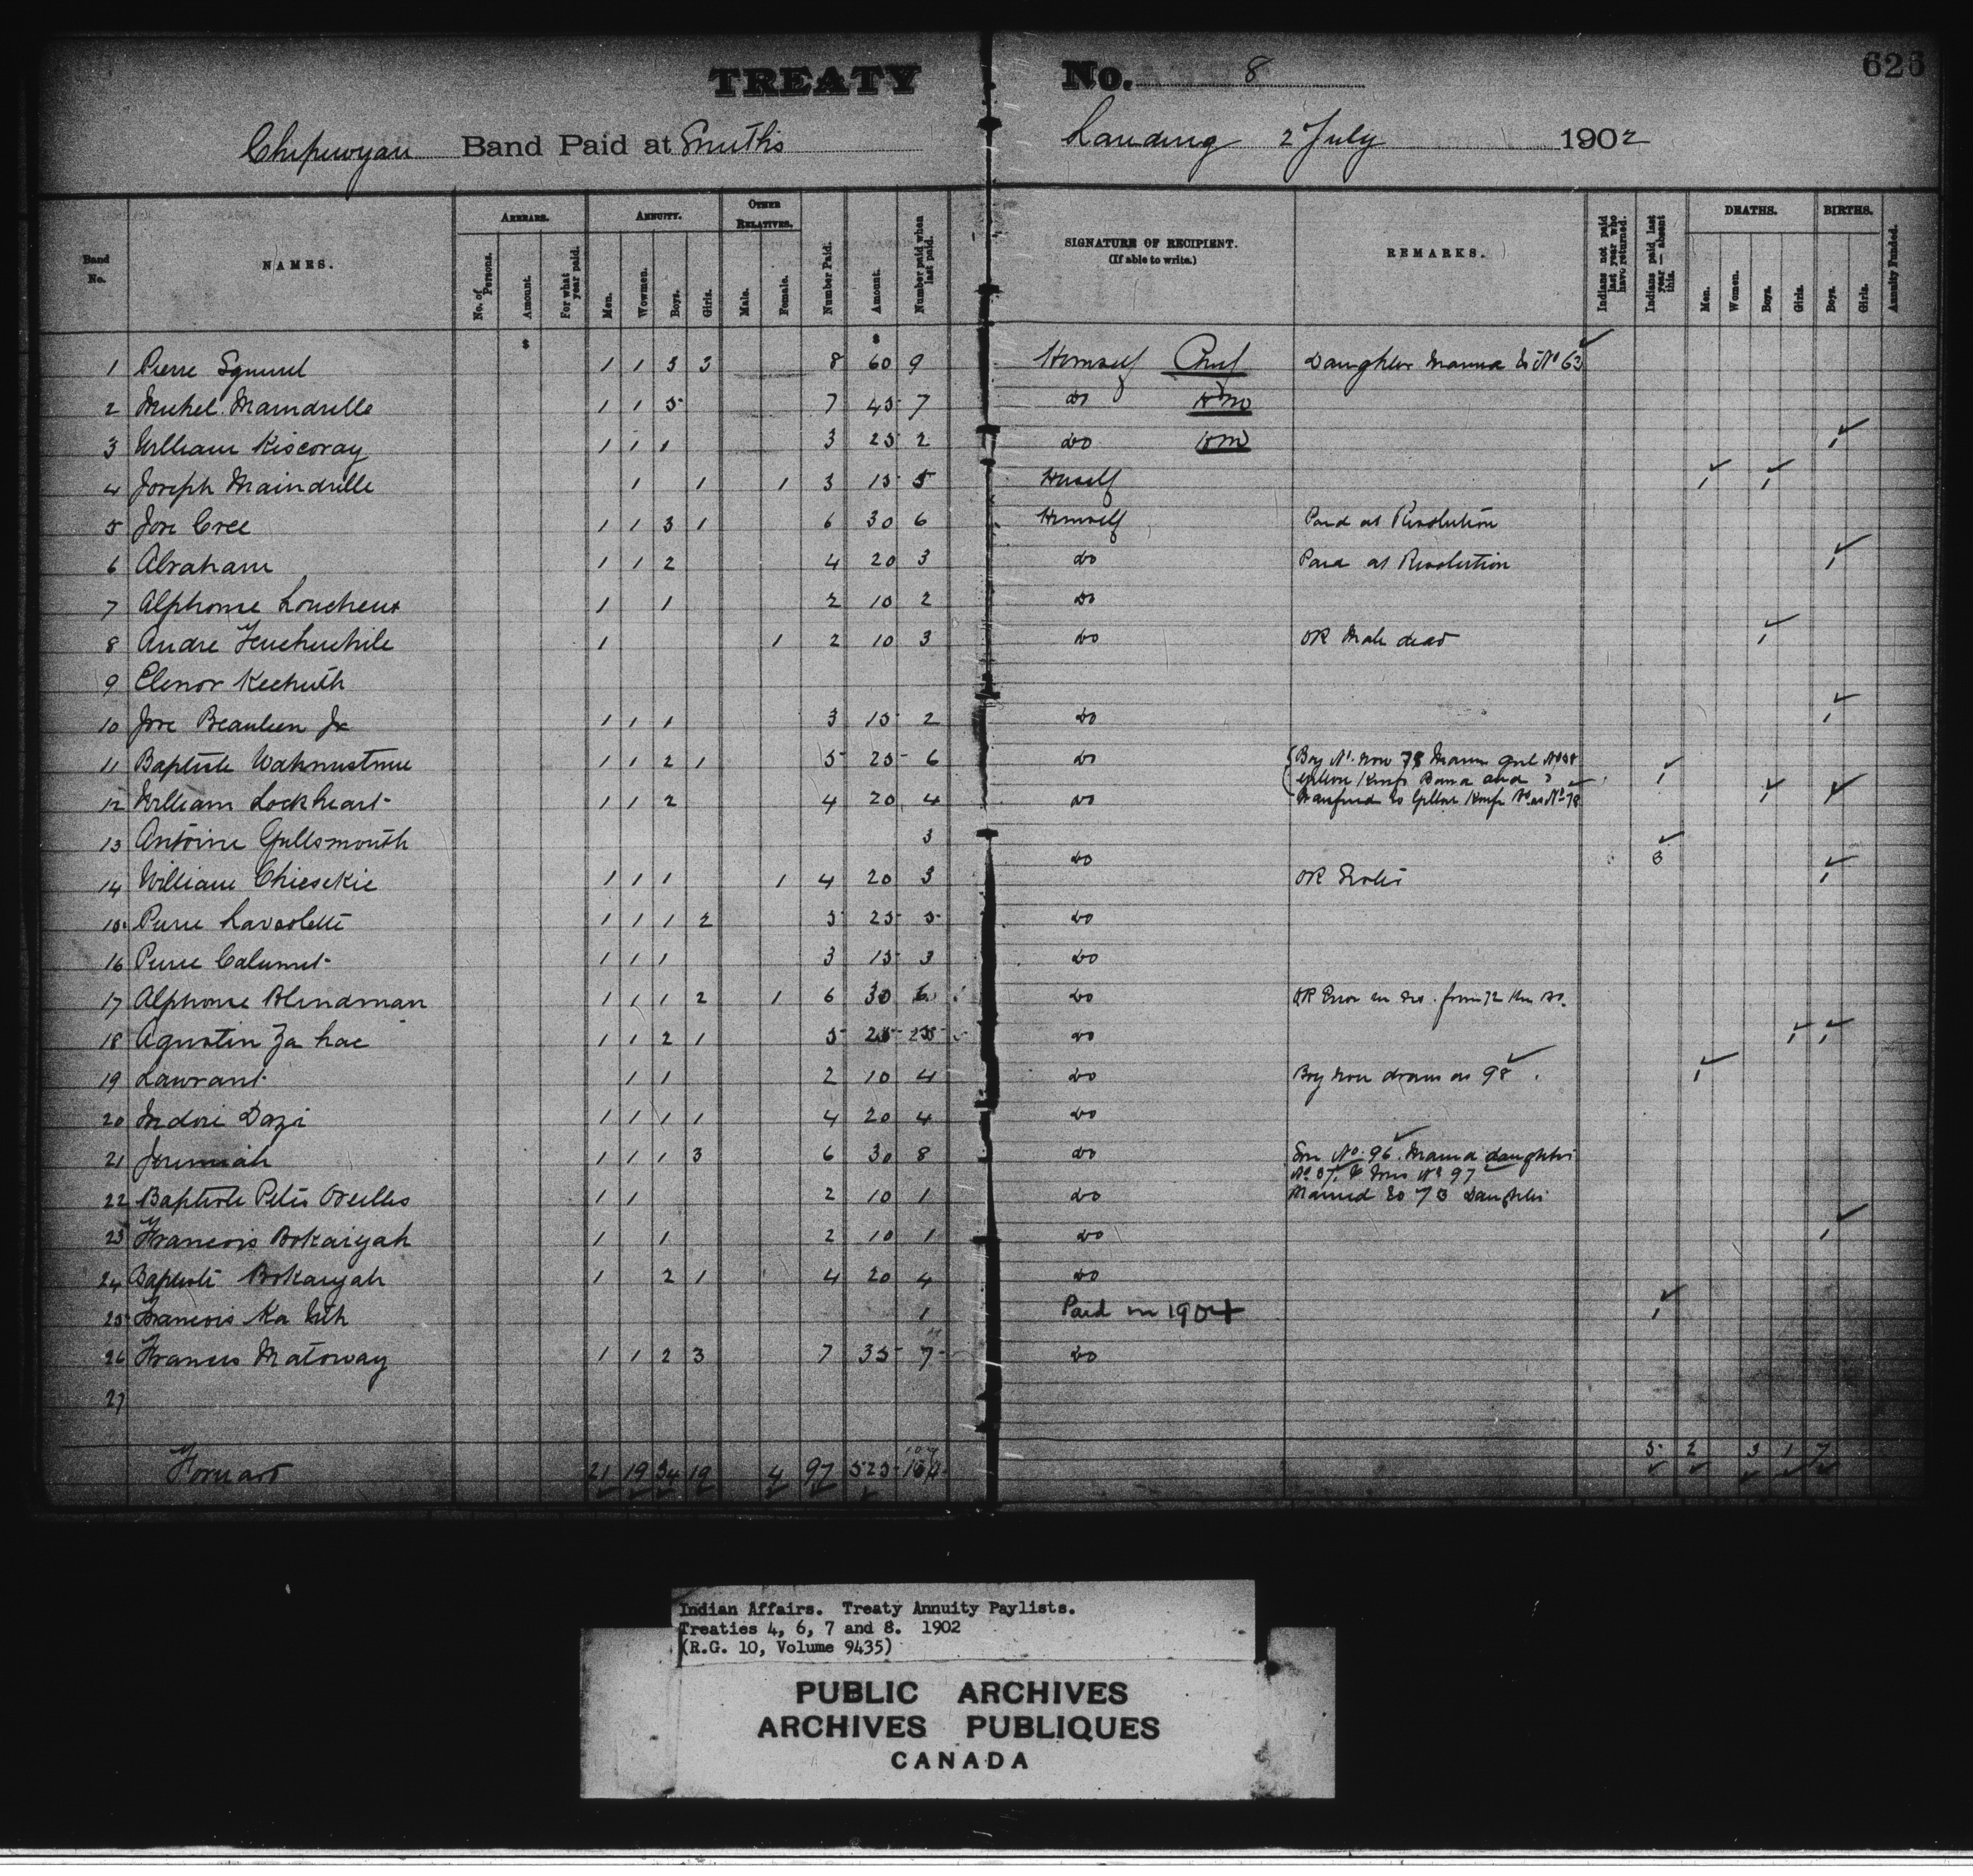 TREATY No. 8
626
Chipewyan Band Paid at Smiths Landing 2 July 1902
Band No.
NAMES.
ARREARS.
No. of Persons.
Amount.
For what year paid.
ANNUITY.
Men.
Women.
Boys.
Girls.
OTHER RELATIVES.
Male.
Female.
Number Paid.
Amount.
Number paid when last paid.
SIGNATURE OF RECIPIENT.
(If able to write.)
REMARKS.
Indians not paid last year who have returned.
Indians paid last year — absent this.
DEATHS.
Men.
Women.
Boys.
Girls.
BIRTHS.
Boys.
Girls.
Annuity Funded.
$ $
1 Pierre Squirrel 1 1 3 3 8 60 9 Himself Chief Daughter Married to No 63
2 Michel Maindrille 1 1 5 7 45 7 do
3 William Kiscoray 1 1 1 3 25 2 do 1
4 Joseph Maindrille 1 1 1 3 15 5 1 1
5 Jose Cree 1 1 3 1 6 30 6 Himself Paid at Resolution
6 Abraham 1 1 2 4 20 3 do Paid at Resolution 1
7 Alphonse Loucheux 1 1 2 10 2 do
8 Andre 1 1 2 10 3 do OR Male dead 1
9 Elenor
10 Jose Beaulieu Jr 1 1 1 3 15 2 do 1
11 Baptiste 1 1 2 1 5 25 6 do Boy No. now 78 1
12 William Lockheart 1 1 2 4 20 4 do 1 1
13 Antoine Gullsmouth 3 3
14 William Chiesekie 1 1 1 1 4 20 3 do OR Sister 1
15 Pierre Laviolette 1 1 1 2 5 25 5 do
16 Pierre Calumet 1 1 1 3 15 3 do
17 Alphonse Blindman 1 1 1 2 1 6 30 6 do OR Error in No. from 72
18 Agustin Za hae 1 1 2 1 5 25 5 do 1 1
19 Laurant 1 1 2 10 4 do Boy now draws as 98 1
20 Indori Dazi 1 1 1 1 4 20 4 do
21 Jeremiah 1 1 1 3 6 30 8 do Son No. 96. Married daughter
No 97
22 Baptiste Petis Oreilles 1 1 2 10 1 do Married to 78 Daughter
23 Francois Bokaiyah 1 1 2 10 1 do 1
24 Baptiste Bokaiyah 1 2 1 4 20 4 do
25 Francois 1 Paid in 1904 1
26 Francis Matoway 1 1 2 3 7 35 7 do
27
Forward 21 19 34 19 4 97 525 104 5 2 3 1 7
Indian Affairs. Treaty Annuity Paylists.
Treaties 4, 6, 7 and 8. 1902
(R.G. 10, Volume 9435)
PUBLIC ARCHIVES
ARCHIVES PUBLIQUES
CANADA